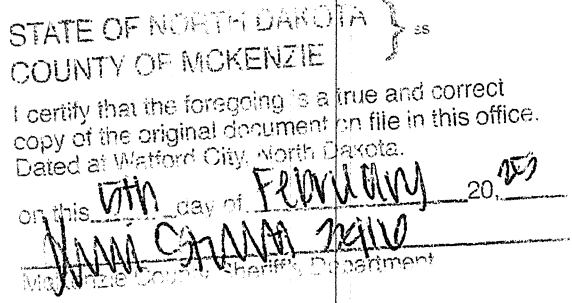 STATE OF NORTH DAKOTA } ss
COUNTY OF MCKENZIE
I certify that the foregoing is a true and correct
copy of the original document on file in this office.
Dated at Watford City, North Dakota.
on this day of February 20
McKenzie County Sheriff's Department